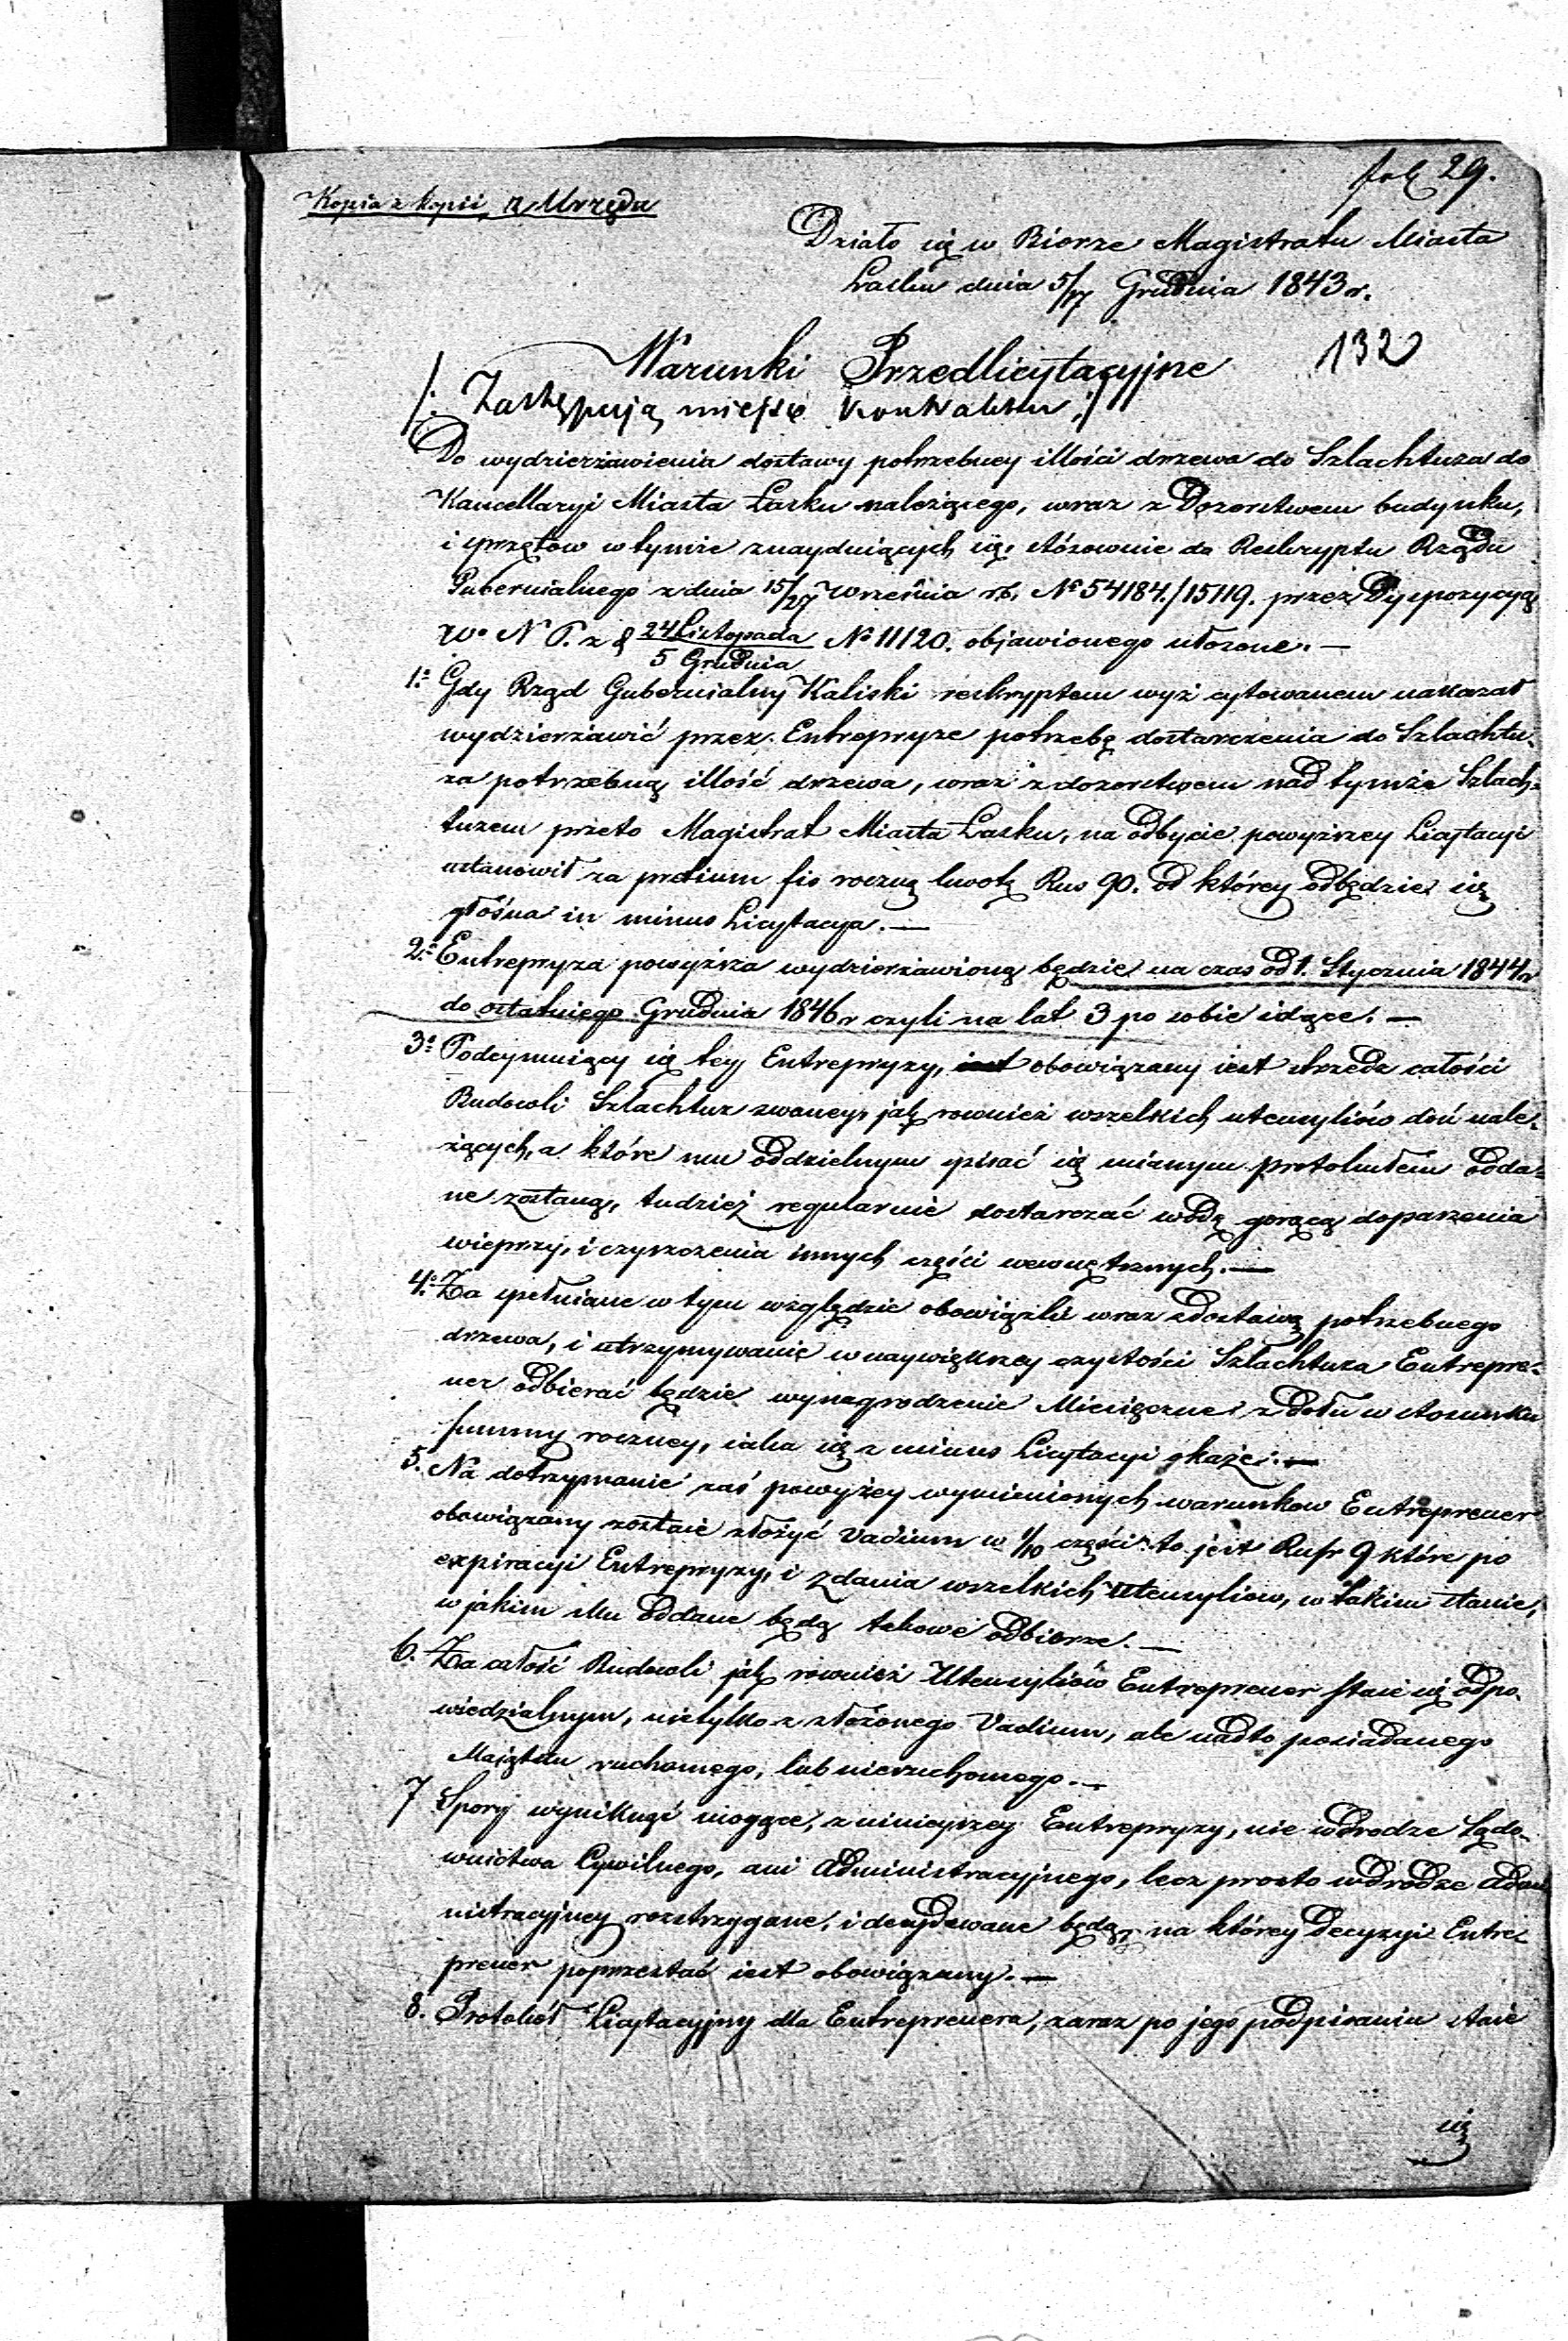 fol 29.
Kopia z kopii, z Urzędu
Działo się w Biorze Magistratu Miasta
Łasku dnia 5/17 Grudnia 1843 r.
132
Warunki Przedlicytacyjne
/: Zastępują mieysce Kontraktu :/
Do wydzierżawienia dostawy potrzebney illości drzewa do Szlachtuza do
Kancellaryi Miasta Łasku należącego, wraz z Dozorstwem budynku,
i sprzętow w tymże znayduiących się, stósownie do Reskryptu Rządu
Gubernialnego z dnia 15/27 Września rb. No 54184./15119. przez Dyspozycyą
Wo N P. z d 24 Listopada/5 Grudnia No 11120. objawionego ułożone. —
1o Gdy Rząd Gubernialny Kaliski reskryptem wyż cytowanem nakazał
wydzierżawić przez Entrepryze potrzebę dostarczenia do Szlachtu-
za potrzebną illość drzewa, wraz z dozorstwem nad tymże Szlach-
tuzem przeto Magistrat Miasta Łasku, na odbycie powyższey Licytacyi
ustanowił za pretium fis roczną kwotę Rus 90. od którey odbędzie się
głośna in minus Licytacya. —
2o Entrepryza powyższa wydzierżawioną będzie na czas od 1. Stycznia 1844 r
do ostatniego Grudnia 1846 r czyli na lat 3 po sobie idące. —
3o Podeymuiący się tey Entrepryzy, obowiązany iest strzedz całości
Budowli Szlachtuz zwaney, jak rownież wszelkich utensyliów doń nale-
żących, a które mu oddzielnym spisać się mianym protokułem odda-
ne zostaną, tudzież regularnie dostarczać wodę gorącą do parzenia
wieprzy, i czyszczenia innych części wewnętrznych. —
4o Za spełniane w tym względzie obowiązki wraz z dostawą potrzebnego
drzewa, i utrzymywanie w naywiększey czystości Szlachtuza Entrepre-
ner odbierać będzie wynagrodzenie Miesięczne z dołu w stosunku
summy roczney, iaka się z minus Licytacyi okaże. —
5. Na dotrzymanie zaś powyżey wymienionych warunkow Entreprener
obowiązany zostaie złożyć Vadium w 1/10 części to jest Rusr 9 które po
expiracyi Entrepryzy, i zdania wszelkich utensyliow, w takim stanie,
w jakim Mu oddane będą takowe odbierze. —
6. Za całość Budowli jak rownież Utensyliów Entreprener staie się odpo-
wiedzialnym, nietylko z złożonego Vadium, ale nadto posiadanego
Maiątku ruchomego, lub nieruchomego. —
7 Spory wyniknąć mogące, z ninieyszey Entrepryzy, nie w drodze Sądo-
wnictwa Cywilnego, ani Administracyjnego, lecz prosto w drodze Admi
nistracyjney rozstrzygane, i decydowane będą, na którey Decyzyi Entre-
prener poprzestać iest obowiązany. —
8. Protokół Licytacyjny dla Entreprenera, zaraz po jego podpisaniu staie
się